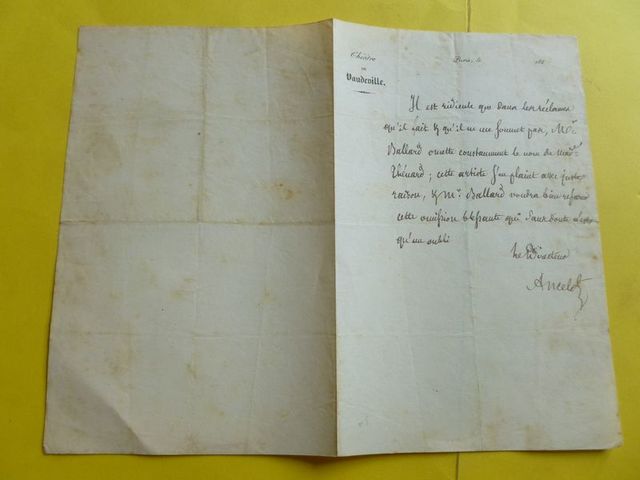 Théâtre
DU
Vaudeville.
Paris, le 184
Il est ridicule que dans les réclames
qu'il fait & qu'il ne me soumet pas, Mr.
Ballard omette constamment le nom de Mad.
Thénard ; cette artiste s'en plaint avec juste
raison, & Mr. Ballard voudra bien réparer
cette omission blessante qui sans doute n'est
qu'un oubli
Le Directeur
Ancelot